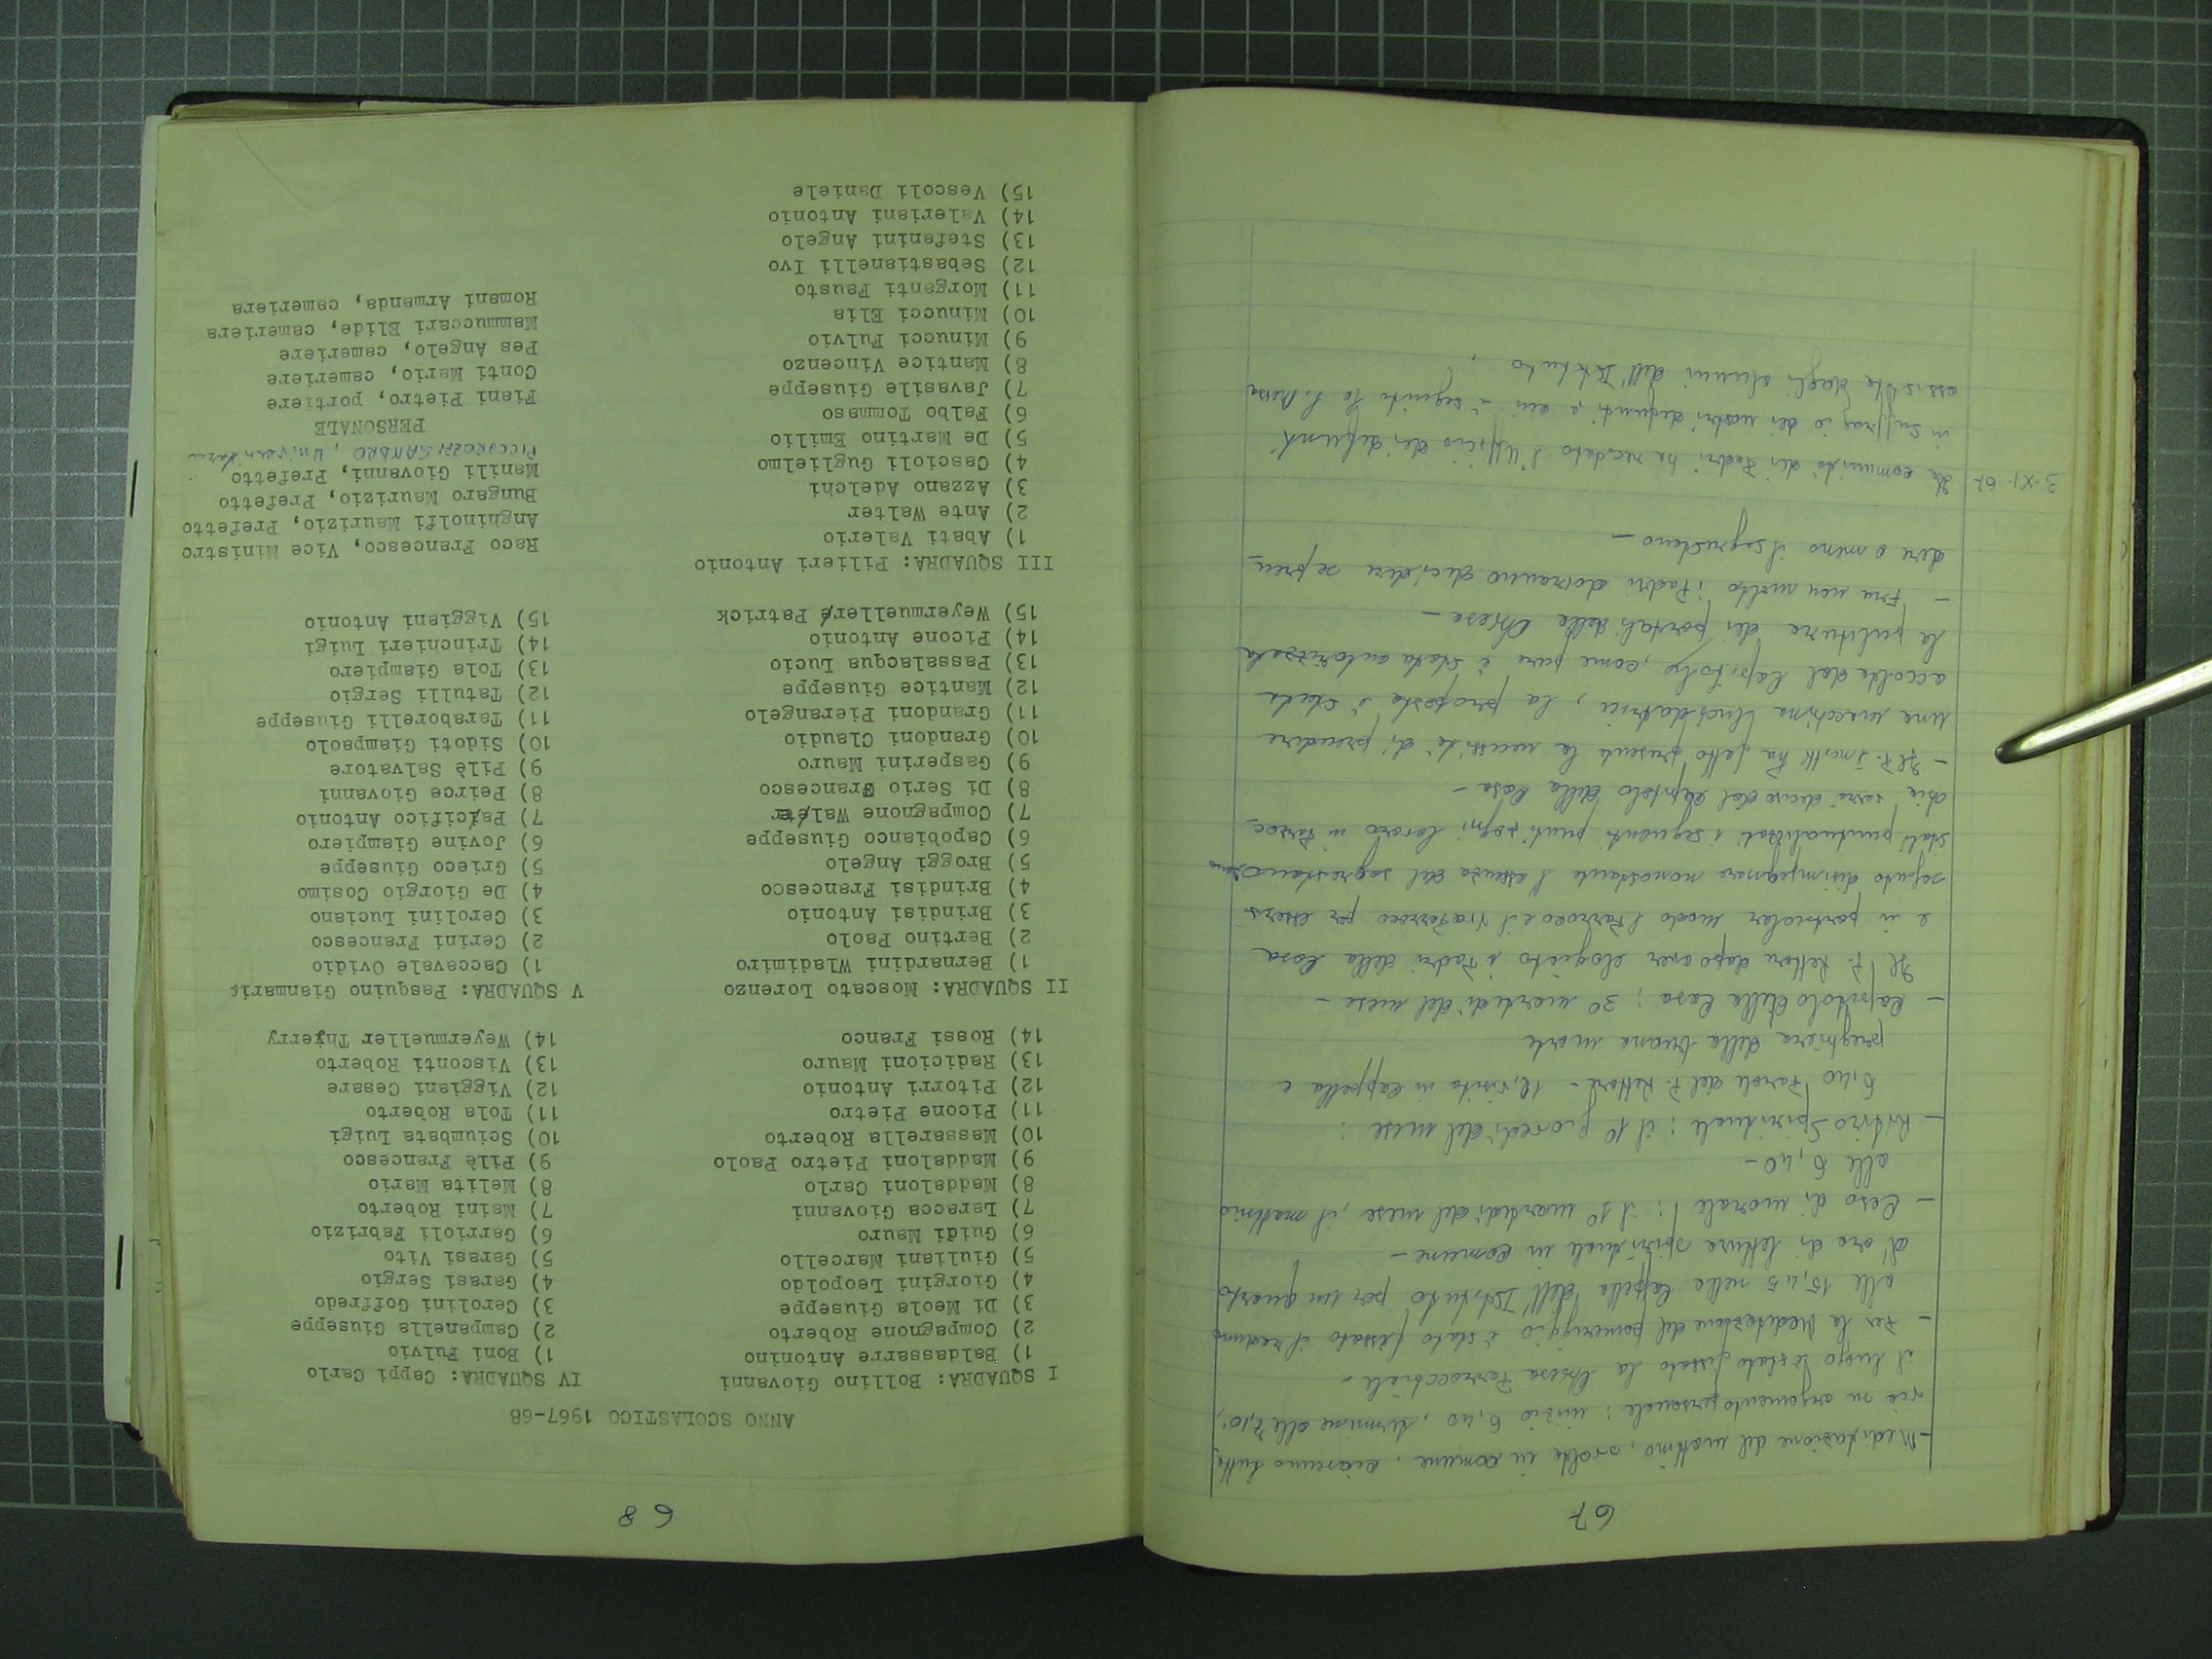 67
- Meditazione del mattino, svolta in comune, ciascuno tutta-
via su argomento personale: inizio 6,40, termine alle 7,10;
il luogo è stato fissato la Chiesa Parrocchiale -
- Per la Meditazione del pomeriggio è stato fissato il raduno
alle 15,45 nella Cappella dell'Istituto per un quarto
d'ora di lettura spirituale in comune -
- Caso di morale: il 1° martedì del mese, il mattino
alle 6,40 -
- Ritiro Spirituale: il 1° giovedì del mese:
6,40 Parole del P. Rettore - 12, visita in Cappella e
preghiera della buona morte
- Capitolo della Casa: 3° martedì del mese -
Il P. Rettore dopo aver elogiato i Padri della Casa
e in particolar modo il Parroco e il Viceparroco per essersi
saputo disimpegnare nonostante l'assenza del sagrestano sono
stati puntualizzati i seguenti punti: ogni lavoro in Parroc-
chia sarà deciso dal Capitolo della Casa -
- Il P. ha fatto presente la necessità di prendere
una macchina lucidatrice, la proposta è stata
accolta dal Capitolo, come pure è stata autorizzata
la pulitura dei portali della Chiesa -
- Fra non molto i Padri dovranno decidere se pren-
dere o meno il sagrestano -
3.XI.67 La comunità dei Padri ha recitato l'Ufficio dei defunti
in suffragio dei nostri defunti, a cui è seguita la S. Messa
assistita dagli alunni dell'Istituto.
68
ANNO SCOLASTICO 1967-68
I SQUADRA: Bollino Giovanni
1) Baldassarre Antonino
2) Compagnone Roberto
3) Di Meola Giuseppe
4) Giorgini Leopoldo
5) Giuliani Marcello
6) Guidi Mauro
7) Laracca Giovanni
8) Maddaloni Carlo
9) Maddaloni Pietro Paolo
10) Massarella Roberto
11) Picone Pietro
12) Pitorri Antonio
13) Radicioni Mauro
14) Rossi Franco
II SQUADRA: Moscato Lorenzo
1) Bernardini Wladimiro
2) Bertino Paolo
3) Brindisi Antonio
4) Brindisi Francesco
5) Broggi Angelo
6) Capobianco Giuseppe
7) Compagnone Walter
8) Di Serio Francesco
9) Gasperini Mauro
10) Grandoni Claudio
11) Grandoni Pierangelo
12) Mantice Giuseppe
13) Passalacqua Lucio
14) Picone Antonio
15) Weyermueller Patrick
III SQUADRA: Pilieri Antonio
1) Abati Valerio
2) Ante Walter
3) Azzano Adelchi
4) Cascioli Guglielmo
5) De Martino Emilio
6) Falbo Tommaso
7) Javasile Giuseppe
8) Mantice Vincenzo
9) Minucci Fulvio
10) Minucci Elia
11) Morganti Fausto
12) Sebastianelli Ivo
13) Stefanini Angelo
14) Valeriani Antonio
15) Vescoli Daniele
IV SQUADRA: Cappi Carlo
1) Boni Fulvio
2) Campanella Giuseppe
3) Cerolini Goffredo
4) Garasi Sergio
5) Garasi Vito
6) Garrioli Fabrizio
7) Maini Roberto
8) Melita Mario
9) Pilè Francesco
10) Sciumbata Luigi
11) Tola Roberto
12) Viggiani Cesare
13) Visconti Roberto
14) Weyermueller Thierry
V SQUADRA: Pasquino Gianmaria
1) Caccavale Ovidio
2) Cerini Francesco
3) Cerolini Luciano
4) De Giorgio Cosimo
5) Grieco Giuseppe
6) Jovine Giampiero
7) Pacifico Antonio
8) Peirce Giovanni
9) Pilè Salvatore
10) Sidoti Giampaolo
11) Taraborelli Giuseppe
12) Tatulli Sergio
13) Tola Giampiero
14) Trinchieri Luigi
15) Viggiani Antonio
Raco Francesco, Vice Ministro
Anghinolfi Maurizio, Prefetto
Bungaro Maurizio, Prefetto
Manili Giovanni, Prefetto
PICCAROZZI SANDRO, Universitario
PERSONALE
Fiani Pietro, portiere
Conti Mario, cameriere
Pes Angelo, cameriere
Mammuccari Elide, cameriera
Romani Armanda, cameriera